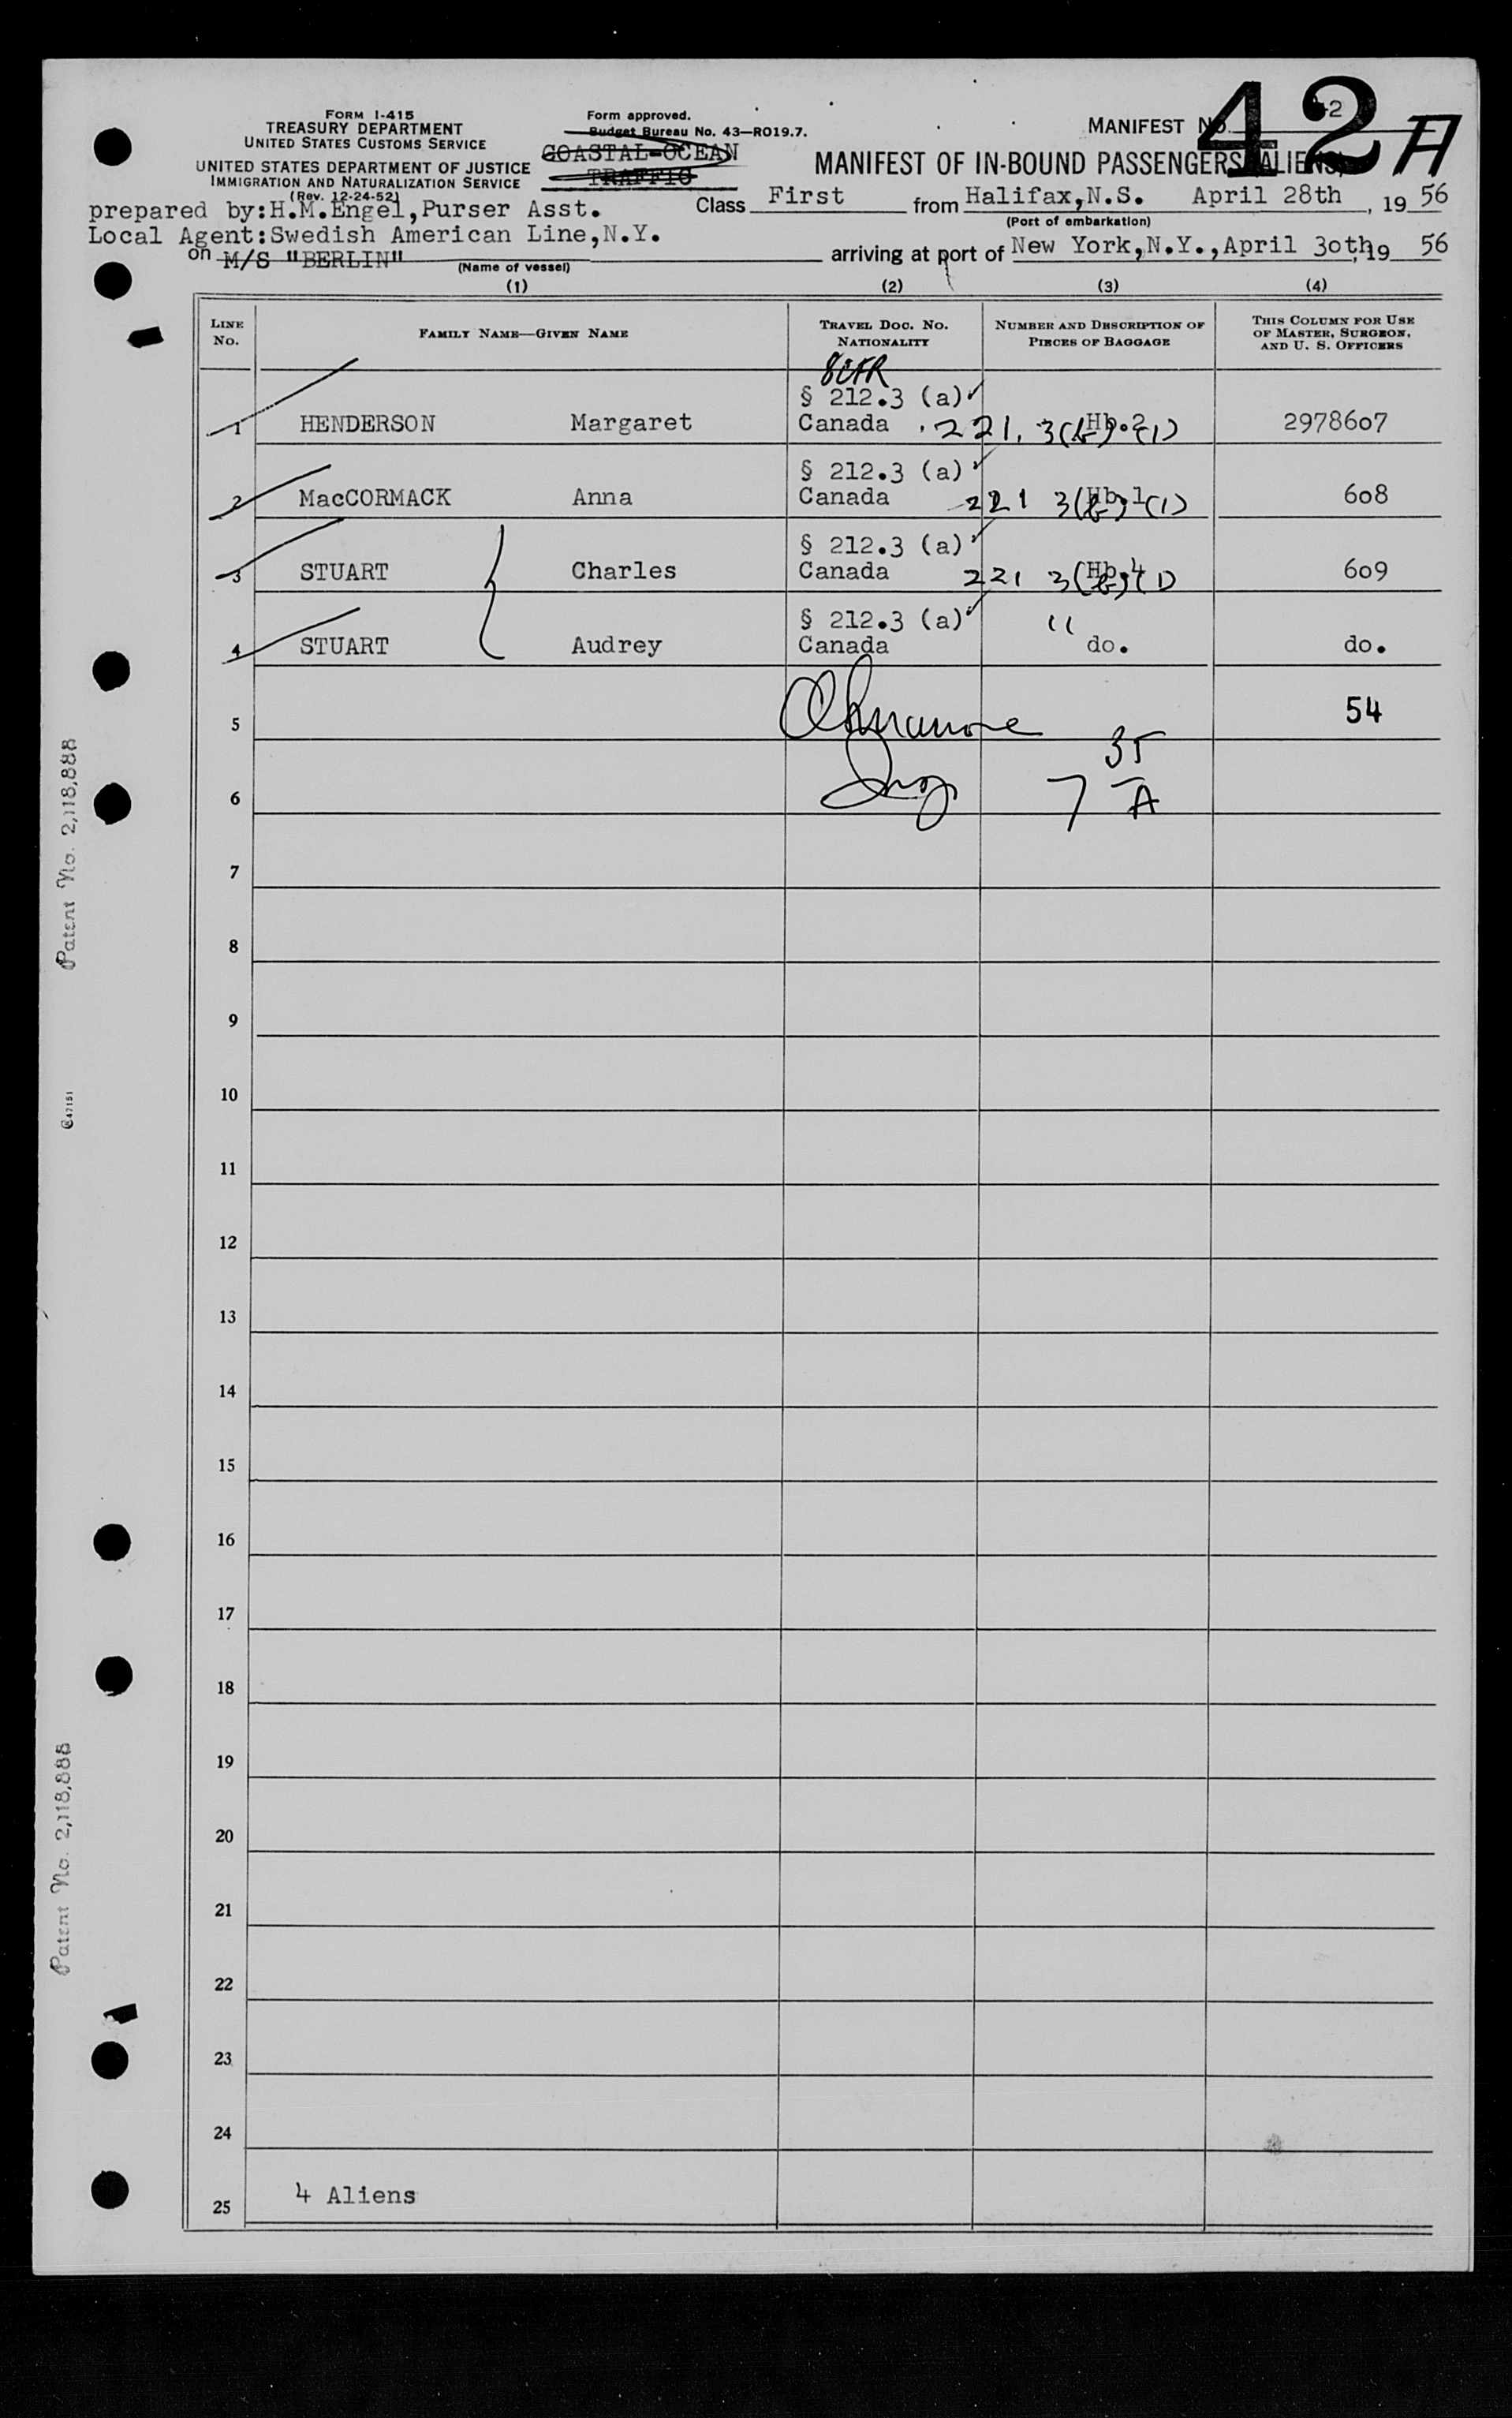 FORM I-415
TREASURY DEPARTMENT
UNITED STATES CUSTOMS SERVICE
UNITED STATES DEPARTMENT OF JUSTICE
IMMIGRATION AND NATURALIZATION SERVICE
(Rev. 12-24-52)
Form approved.
Budget Bureau No. 43—RO19.7.
COASTAL-OCEAN
TRAFFIC
MANIFEST No. 42
42 A
MANIFEST OF IN-BOUND PASSENGERS (ALIENS)
prepared by:H.M.Engel,Purser Asst.
Class First from Halifax,N.S. April 28th, 1956
(Port of embarkation)
Local Agent:Swedish American Line,N.Y.
on M/S "BERLIN"
(Name of vessel)
arriving at port of New York,N.Y.,April 30th, 19 56
(1) (2) (3) (4)
LINE No.
FAMILY NAME—GIVEN NAME
TRAVEL DOC. NO. NATIONALITY
NUMBER AND DESCRIPTION OF PIECES OF BAGGAGE
THIS COLUMN FOR USE OF MASTER, SURGEON, AND U. S. OFFICERS
8CFR
§ 212.3 (a)
1 HENDERSON Margaret Canada 221.3(b)(1) Hb.2 2978607
§ 212.3 (a)
2 MacCORMACK Anna Canada 221 3(b)(1) Hb.1 608
§ 212.3 (a)
3 STUART Charles Canada 221 3(b)(1) Hb.4 609
§ 212.3 (a) "
4 STUART Audrey Canada do. do.
5 54
35
6 7 A
7
8
9
10
11
12
13
14
15
16
17
18
19
20
21
22
23
24
25 4 Aliens
Patent No. 2,118,888
C47151
Patent No. 2,118,888